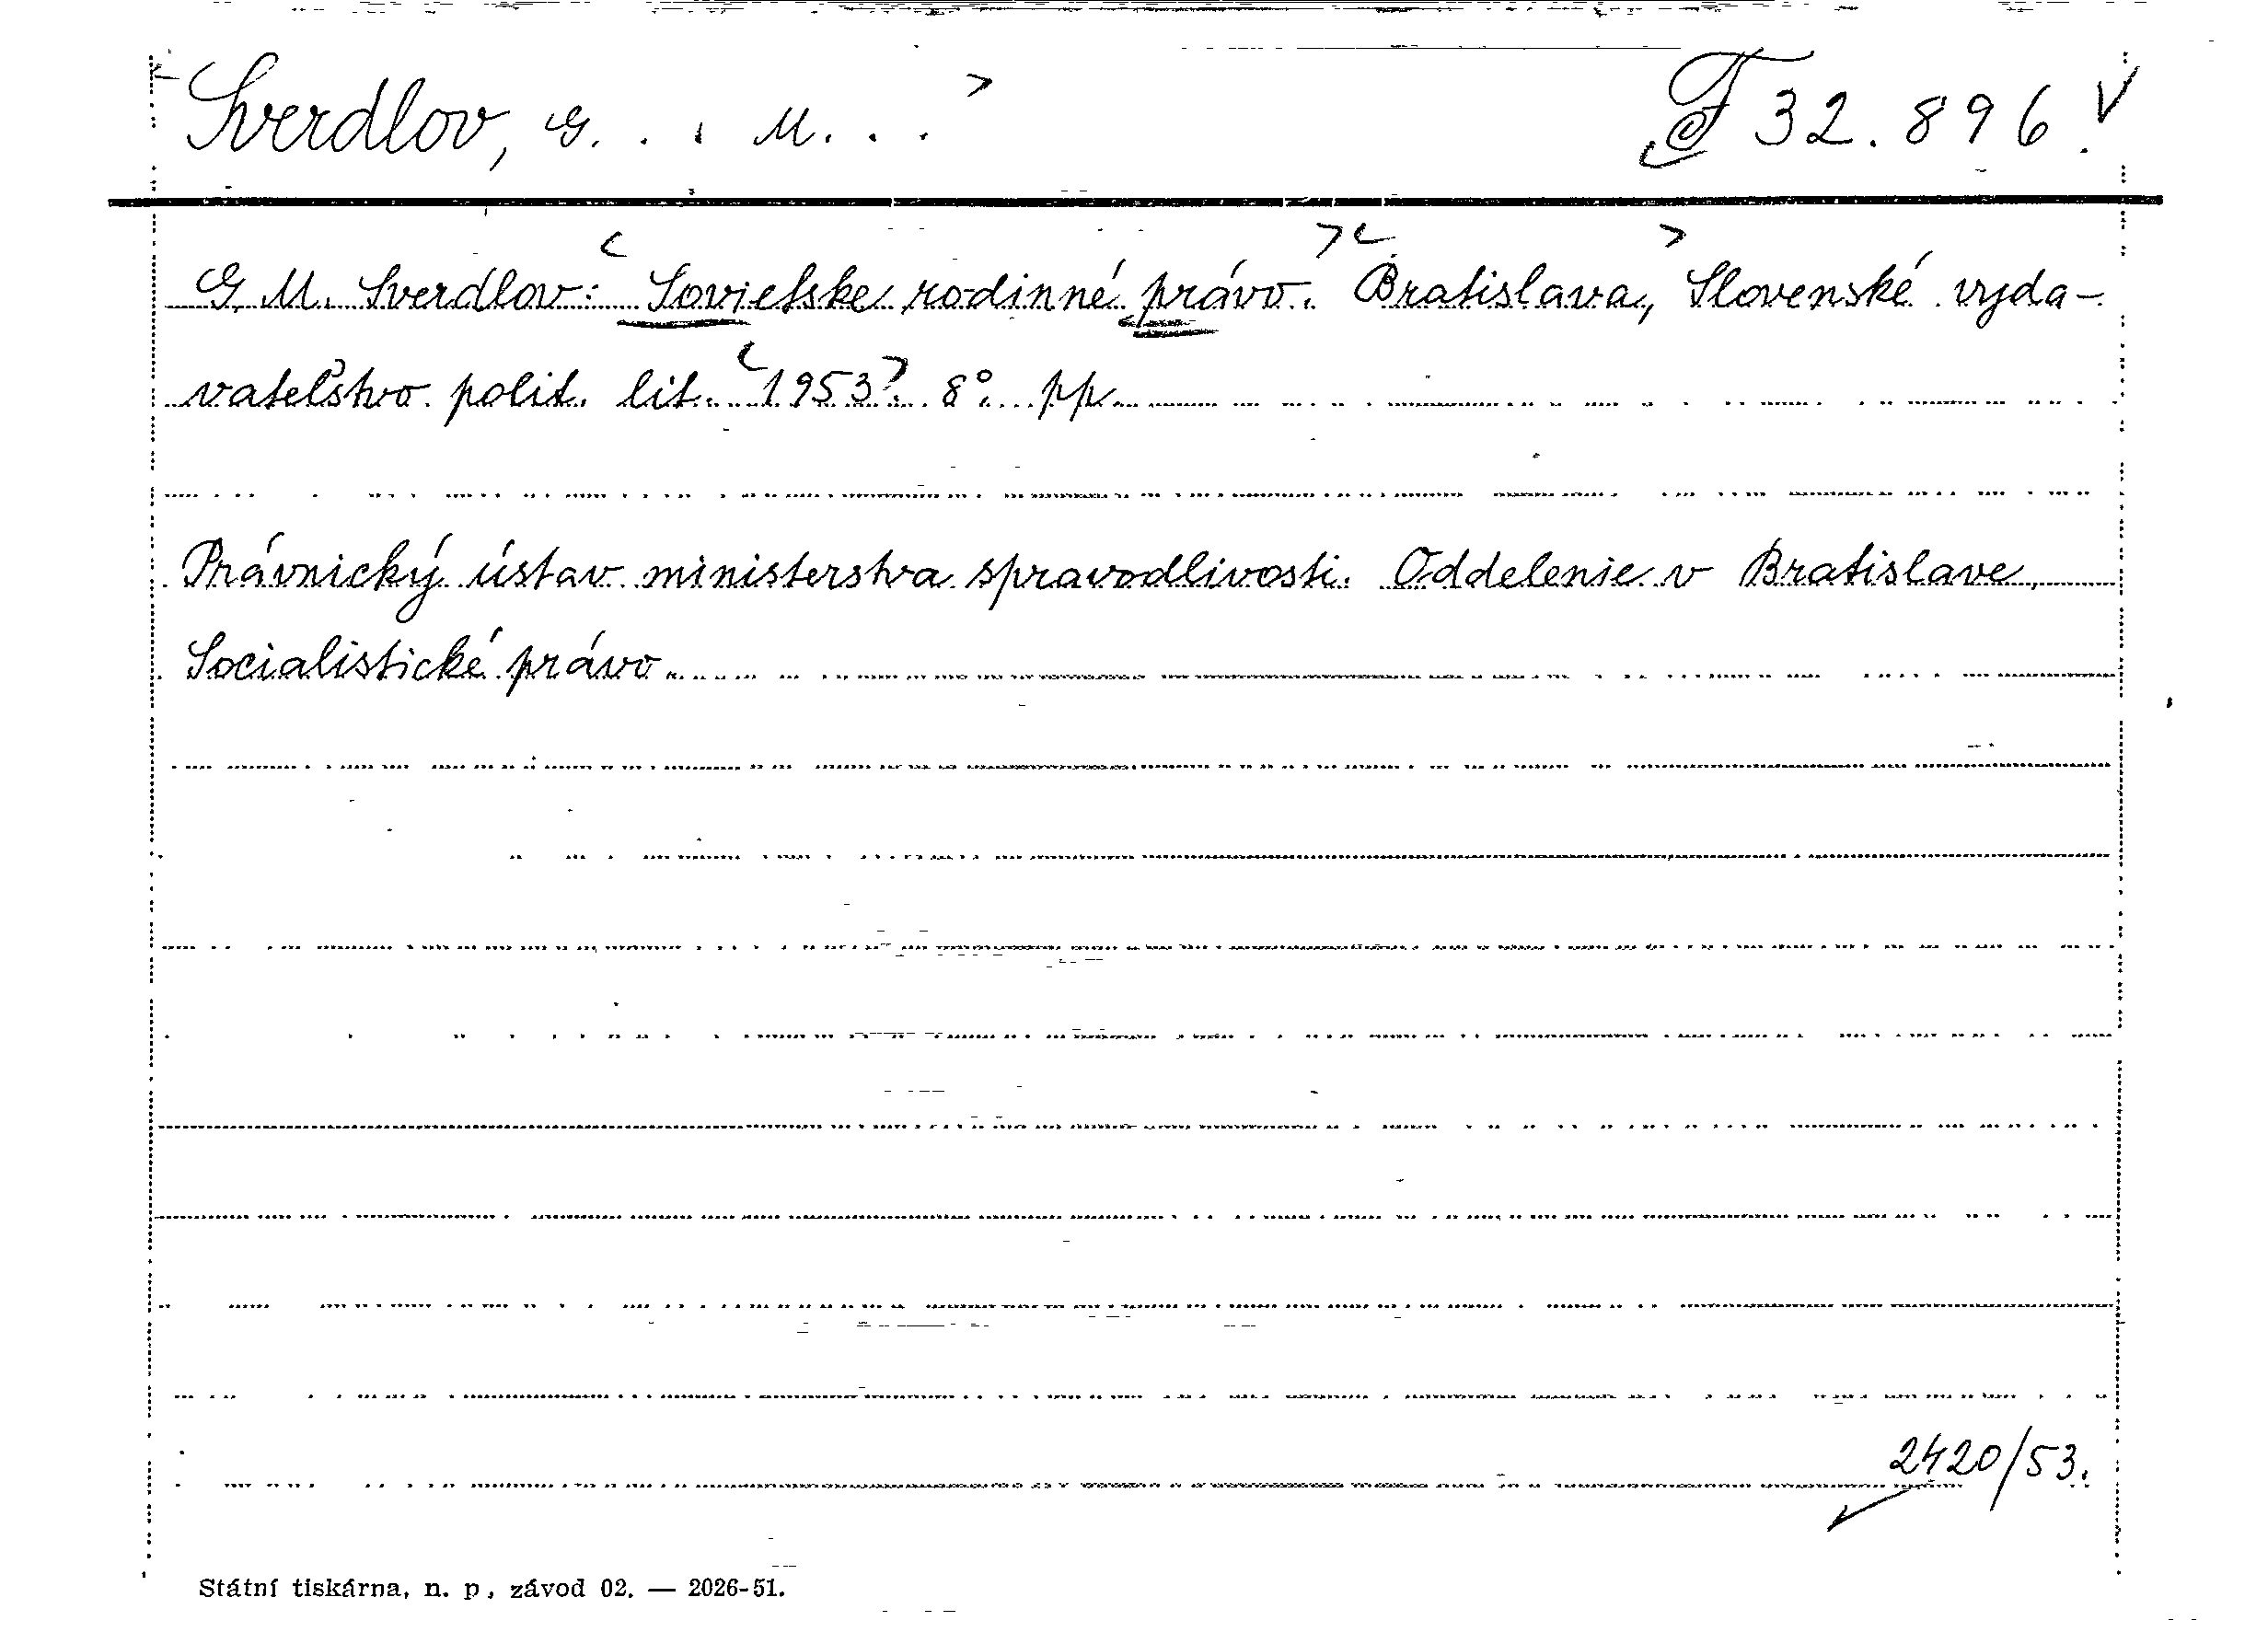 Sverdlov, G. . . M. . .
F 32.896.
G. M. Sverdlov: Sovietske rodinné právo. Bratislava, Slovenské vyda-
vateľstvo polit. lit. 1953. 8°. pp.
Právnický ústav ministerstva spravodlivosti. Oddelenie v Bratislave,
Socialistické právo.
2420/53.
Státní tiskárna, n. p., závod 02. — 2026-51.